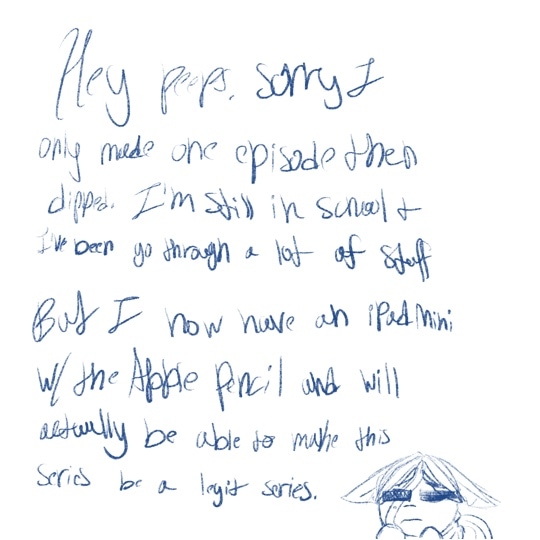 Hey peeps, sorry I
only made one episode then
dipped. I'm still in school +
I've been go through a lot of stuff
But I now have an iPad Mini
w/ the Apple Pencil and will
actually be able to make this
series be a legit series.